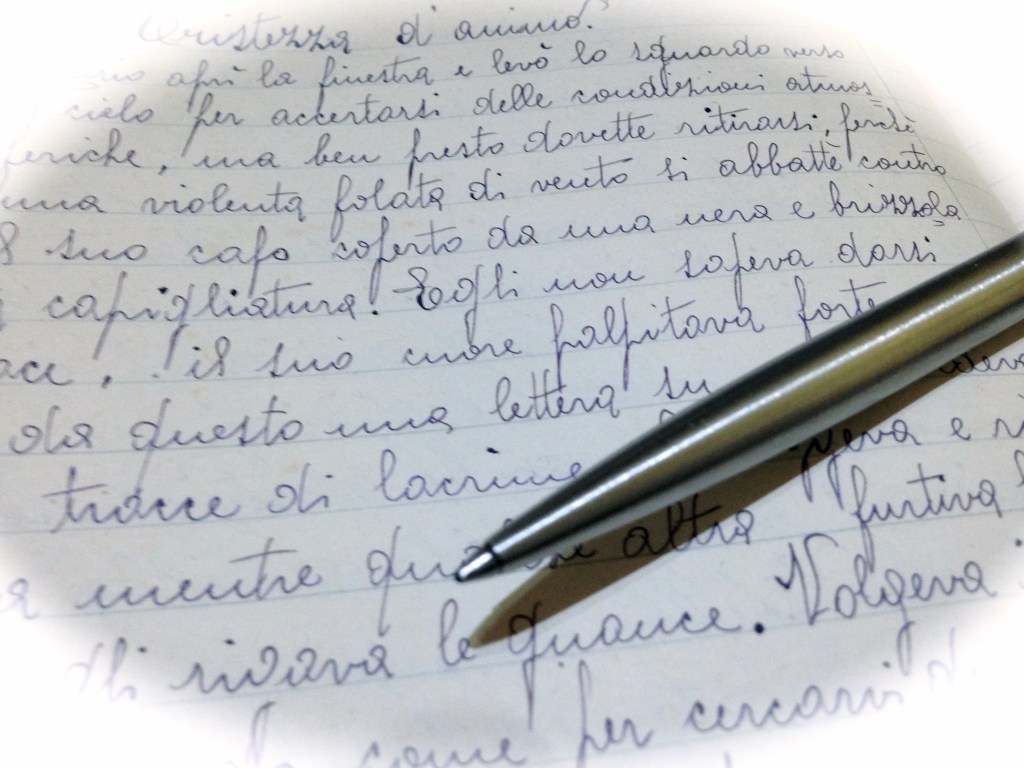 tristezza d'animo.
aprì la finestra e levò lo sguardo verso
cielo per accertarsi delle condizioni atmos=
feriche, ma ben presto dovette ritirarsi, perchè
una violenta folata di vento si abbattè contro
il suo capo coperto da una nera e brizzola=
capigliatura. Egli non sapeva darsi
pace, il suo cuore palpitava forte
da questo una lettera su
tracce di lacrime e
mentre altra furtiva
rigava le guance. Volgeva
come per cercarvi